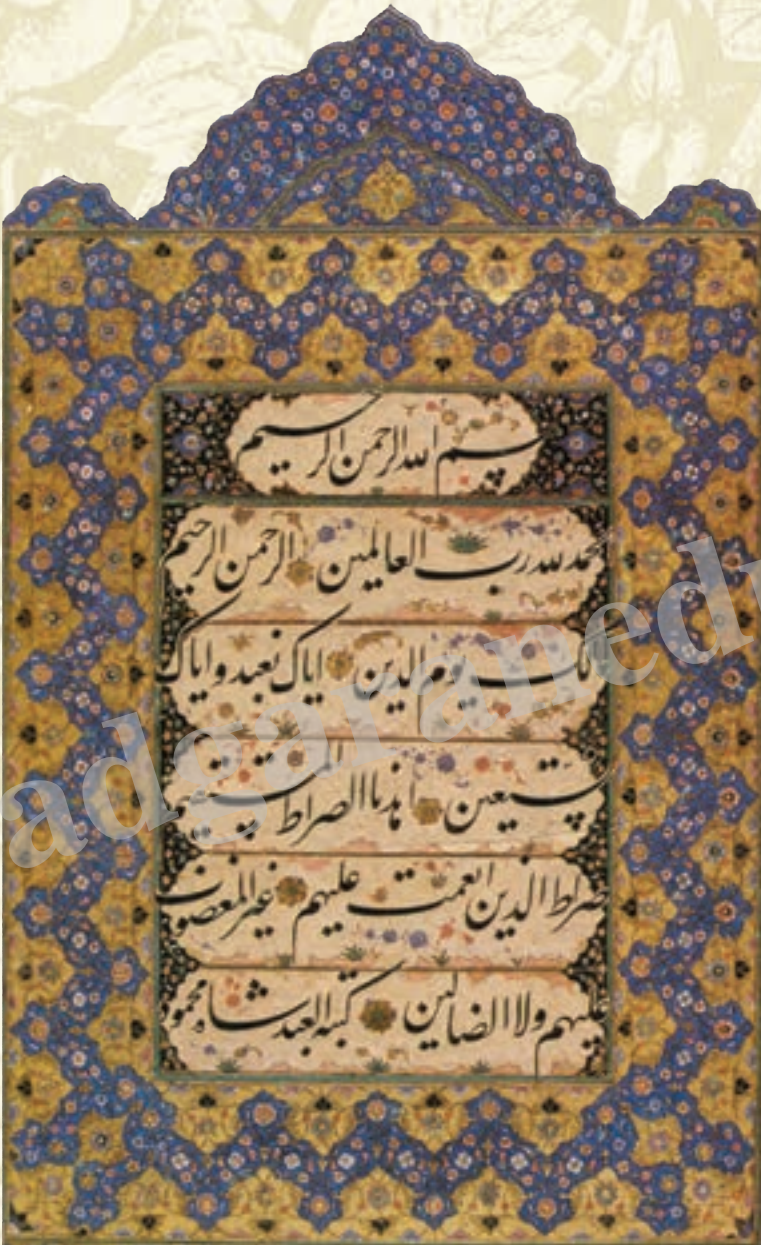 بسم الله الرحمن الرحیم
الحمد لله رب العالمین الرحمن الرحیم
مالک یوم الدین ایاک نعبد و ایاک
نستعین اهدنا الصراط المستقیم
صراط الذین انعمت علیهم غیر المغضوب
علیهم ولا الضالین کتبه العبد شاه محمود
adgaranedu